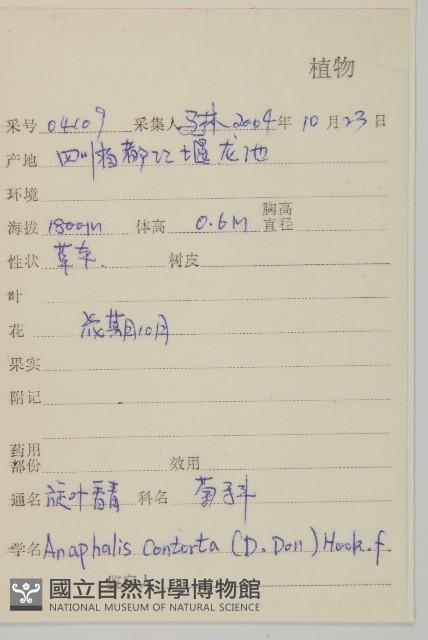 植物
采号 04109 采集人 马林 2004年 10月23日
产地 四川 都江堰龙池
环境
海拔 1800m 体高 0.6M 胸高直径
性状 草本. 树皮
叶
花 花期10月
果实
附记
药用部份 效用
通名 旋叶香青 科名 菊科
学名 Anaphalis contorta (D. Don) Hook.f.
國立自然科學博物館
NATIONAL MUSEUM OF NATURAL SCIENCE